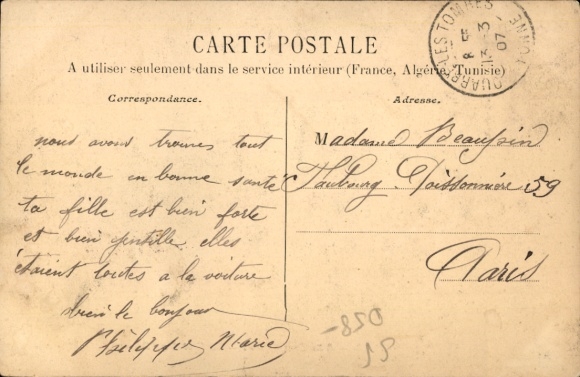 CARTE POSTALE
A utiliser seulement dans le service intérieur (France, Algérie, Tunisie)
Correspondance.
nous avons trouves tout
le monde en bonne santé
ta fille est bien forte
et bien gentille elles
étaient toutes a la voiture
bien le bonjour
Philippe Marie
Adresse.
Madame Beaussin
Faubourg Poissonnière 59
Paris
QUARRÉ-LES-TOMBES
YONNE
13 -3
07
D58-
91